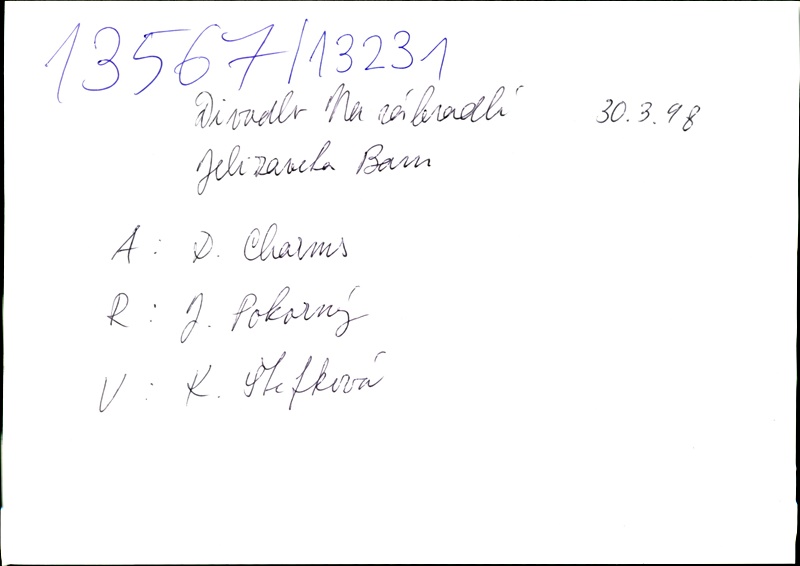 13567/13231
Divadlo Na zábradlí 30.3.98
Jelizaveta Bam
A: D. Charms
R: J. Pokorný
V: K. Štefková